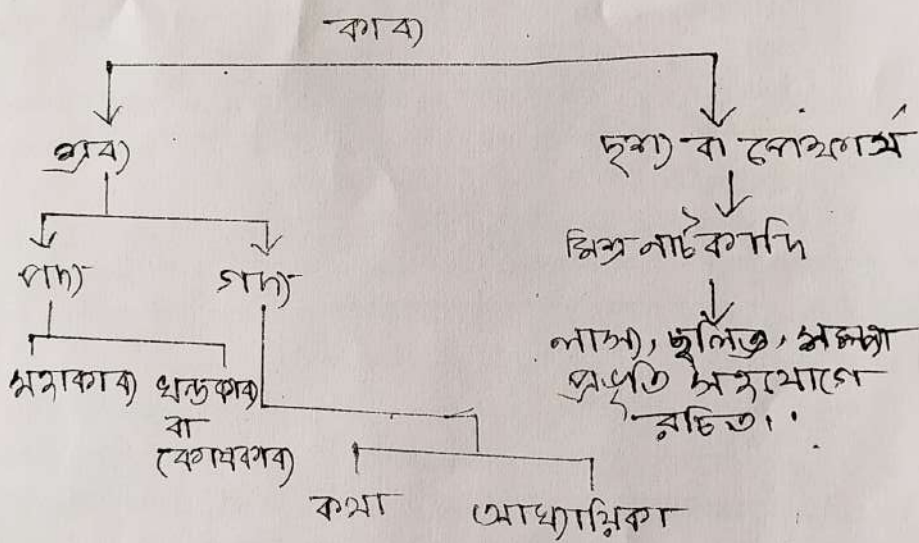 কাব্য
শ্রব্য
দৃশ্য বা প্রেক্ষার্থ
পদ্য
গদ্য
মিশ্র নাটকাদি
মহাকাব্য
খন্ডকাব্য
বা
কোষকাব্য
লাস্য, ছলিত, শম্পা
প্রভৃতি সহযোগে
রচিত।
কথা
আখ্যায়িকা